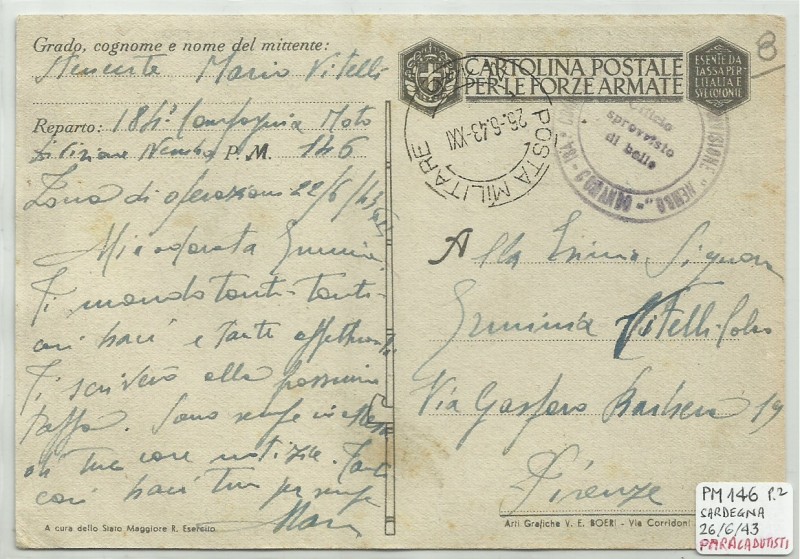 Grado, cognome e nome del mittente:
Tenente Mario Vitelli
Reparto: 184° Compagnia Moto
Divisione Nembo P. M. 146
Zona di operazioni 22/6/43
Mia adorata Erminia,
Ti mando tanti-tanti
cari baci e tanti
Ti scriverò alla prossima
tappa. Sono sempre in
di tue care notizie. Tanti
cari baci tuo per sempre
Mario
A cura dello Stato Maggiore R. Esercito.
CARTOLINA POSTALE
PER LE FORZE ARMATE
ESENTE DA
TASSA PER
L'ITALIA E
SVE COLONIE
8
POSTA MILITARE
26-6-43-XXI
Ufficio
sprovvisto
di bollo
DIVISIONE "NEMBO"
Alla Signora
Erminia Vitelli
Via Gasparo Barbera 19
Firenze
Arti Grafiche V. E. BOERI - Via Corridoni
PM 146 P.2
SARDEGNA
26/6/43
PARACADUTISTI